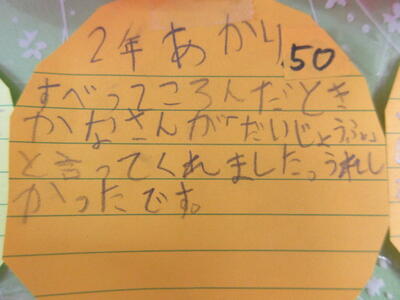 2年 あかり 50
すべってころんだとき
かなさんが「だいじょうぶ。」
と言ってくれました。うれし
かったです。